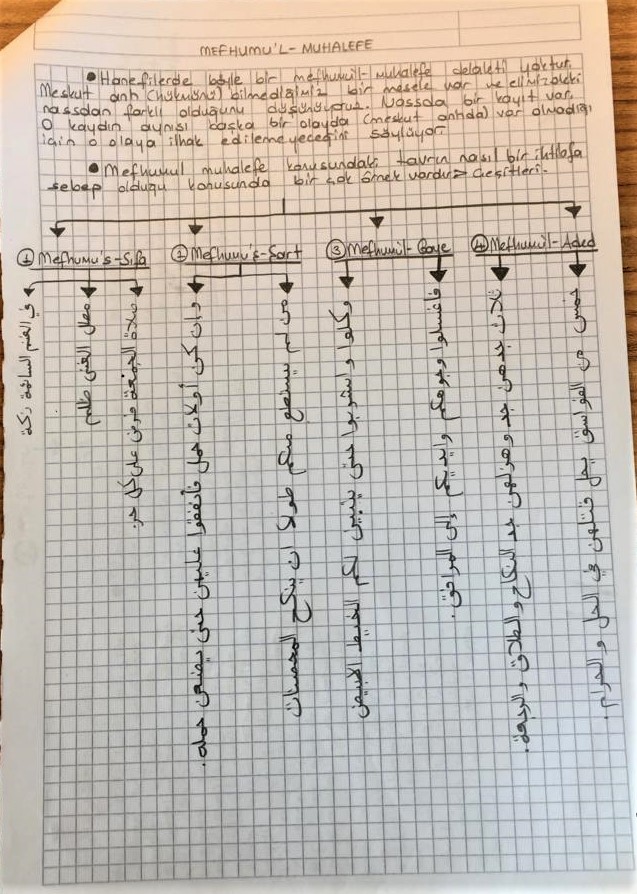 MEFHUMU'L-MUHALEFE
● Hanefilerde böyle bir mefhumul-muhalefe delaleti yoktur.
Meskut anh (hükmünü) bilmediğimiz bir mesele var ve elimizdeki
nassdan farklı olduğunu düşünüyoruz. Nassda bir kayıt var.
O kaydın aynısı başka bir olayda (meskut anhda) var olmadığı
için o olaya ilhak edilemeyeceğini söylüyor.
● Mefhumul muhalefe konusundaki tavrın nasıl bir ihtilafa
sebep olduğu konusunda bir çok örnek vardır> Çeşitleri.
① Mefhumu's-Sıfa
② Mefhumu's-Şart
③ Mefhumül-Gaye
④ Mefhumül-Aded
في الغنم السائمة زكاة
مطل الغني ظلم
صلاة الجمعة فرض على كل حر.
وان كن أولات حمل فأنفقوا عليهن حتى يضعن حمله.
من لم يستطع منكم طولا ان ينكح المحصنات
وكلوا واشربوا حتى يتبين لكم الخيط الابيض
فاغسلوا وجوهكم وايديكم إلى المرافق.
ثلاث جدهن جد وهزلهن جد النكاح والطلاق والرجعة.
خمس من الفواسق يحل قتلهن في الحل والحرام.